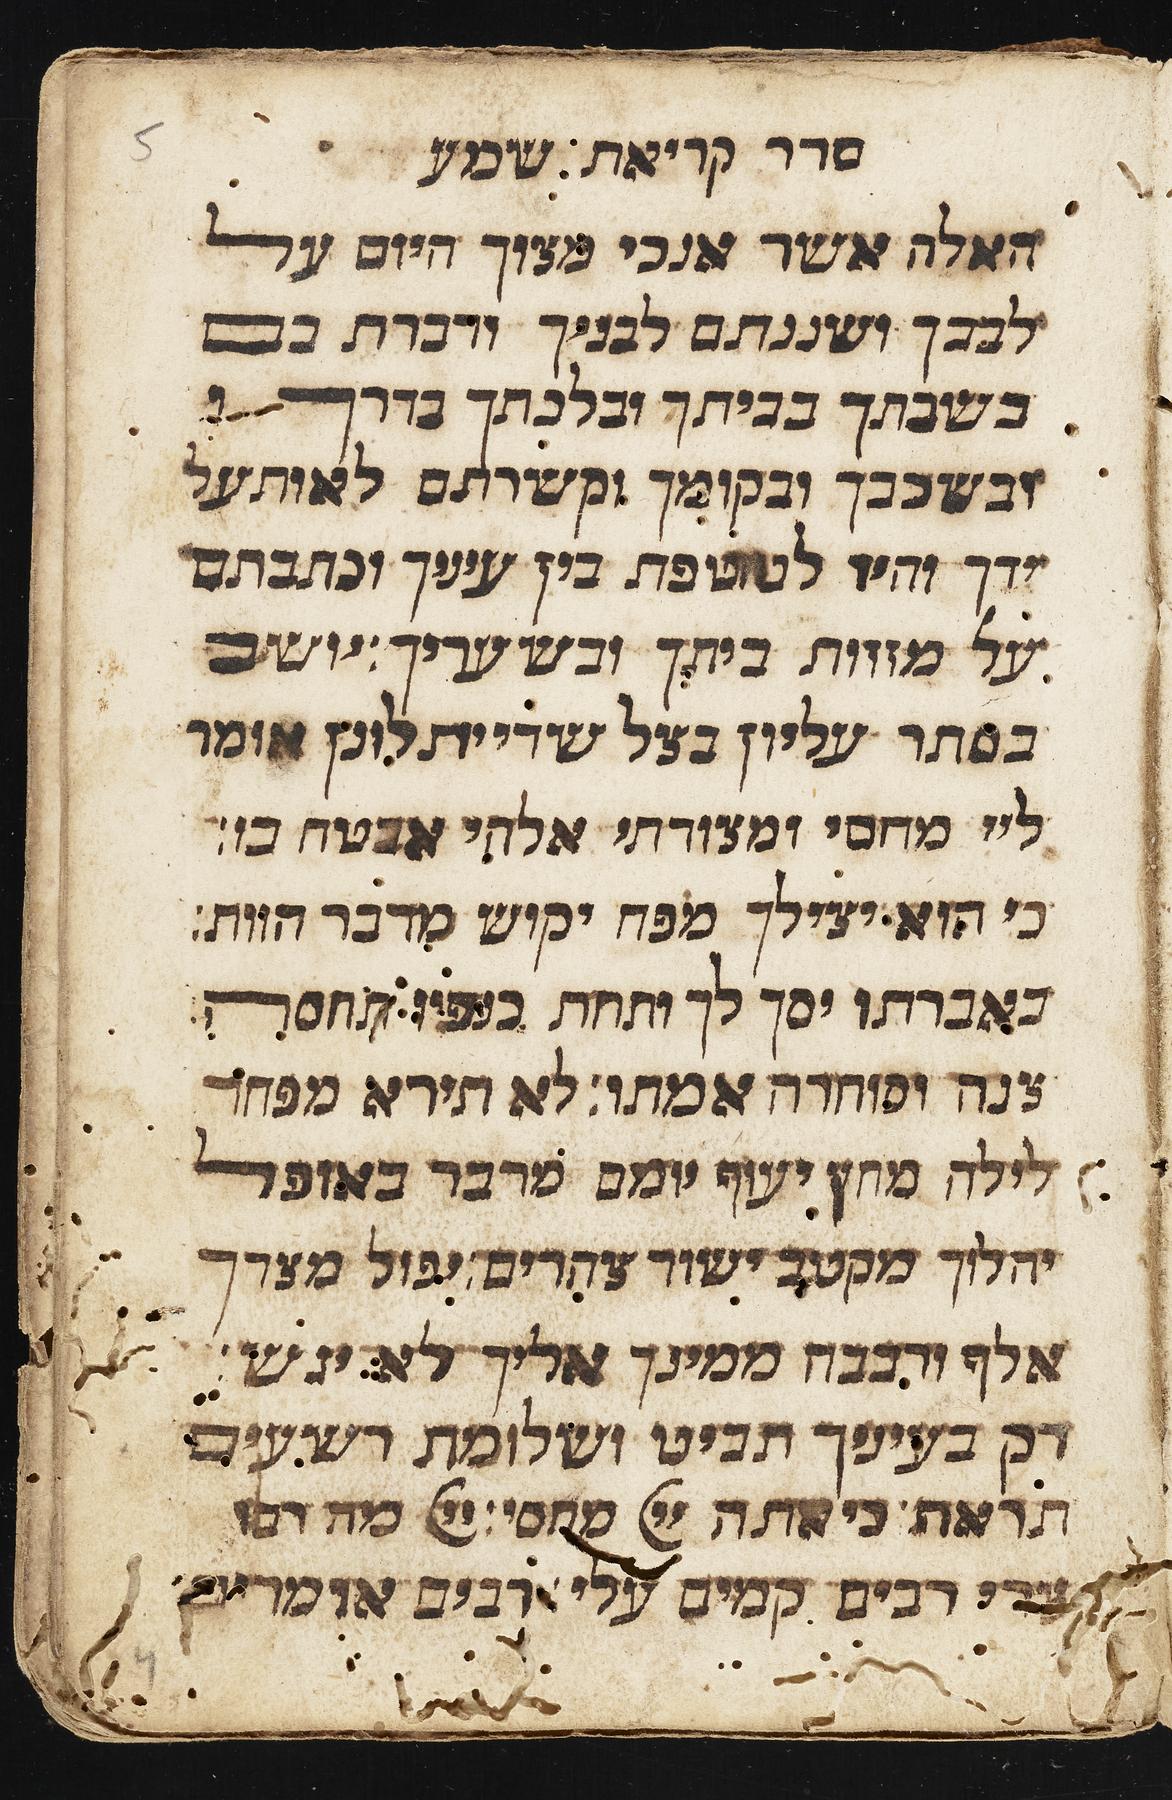 5
סדר קריאת שמע
האלה אשר אנכי מצוך היום על
לבבך ושננתם לבניך ודברת בם
בשבתך בביתך ובלכתך בדרך
ובשכבך ובקומך וקשרתם לאות על
ידך והיו לטוטפת בין עיניך וכתבתם
על מזוזות ביתך ובשעריך: יושב
בסתר עליון בצל שדי יתלונן אומר
ליי מחסי ומצודתי אלהי אבטח בו:
כי הוא יצילך מפח יקוש מדבר הוות:
באברתו יסך לך ותחת כנפיו תחסה
צנה וסוחרה אמתו: לא תירא מפחד
לילה מחץ יעוף יומם מדבר באופל
יהלוך מקטב ישוד צהרים: יפול מצדך
אלף ורבבה ממינך אליך לא יגש:
רק בעיניך תביט ושלומת רשעים
תראה: כי אתה יי מחסי: יי מה רבו
צרי רבים קמים עלי: רבים אומרים
4